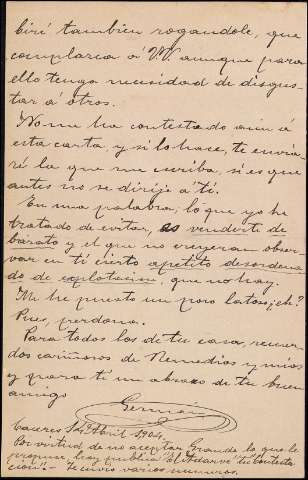 biré tambien rogandole, que
complazca á VV. aunque para
ello tenga necesidad de disgus-
tar á otros.
No me ha contestado aún á
esta carta, y si lo hace, te envia-
ré la que me escriba, si es que
antes no se dirije á tí.
En una palabra; lo que yo he
tratado de evitar, es venderte de
barato y el que no creyeran obser-
var en tí cierto apetito desordena
do de explotacion, que no hay.
Me he puesto un poco latoso ¿eh?
Pues, perdona.
Para todos los de tu casa, recuer-
dos cariñosos de Remedios y mios
y para tí un abrazo de tu buen
amigo
German
Caceres 14 Abril 1904.
En virtud de no aceptar Grande lo que le
propuse, hoy publica "El Adarve" tu contesta
cion - te envio varios numeros.